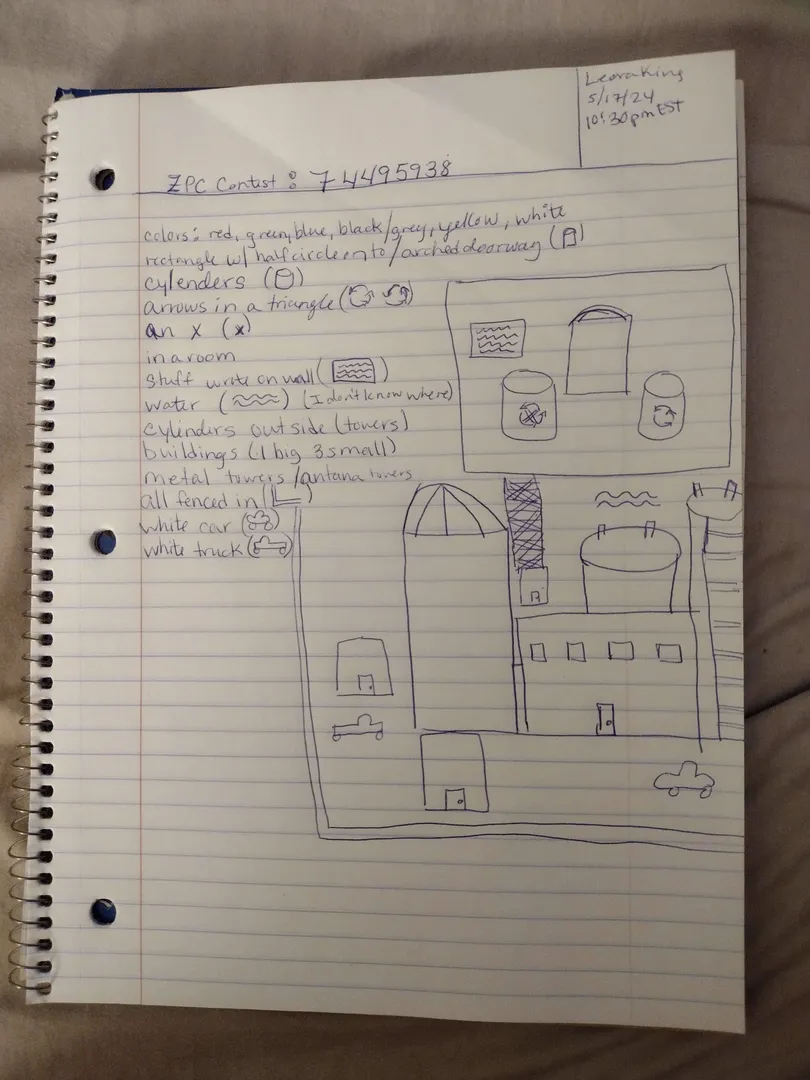 Leora King
5/17/24
10:30pm EST
ZPC Contist : 74495938
colors: red, green, blue, black/grey, yellow, white
rectangle w/ half circle on to/arched doorway ( )
cylenders ( )
arrows in a triangle ( )
an x (x)
in a room
stuff wrote on wall ( )
water ( ) (I don't know where)
cylinders outside (towers)
buildings (1 big 3 small)
metal towers/antana towers
all fenced in ( )
white car ( )
white truck ( )